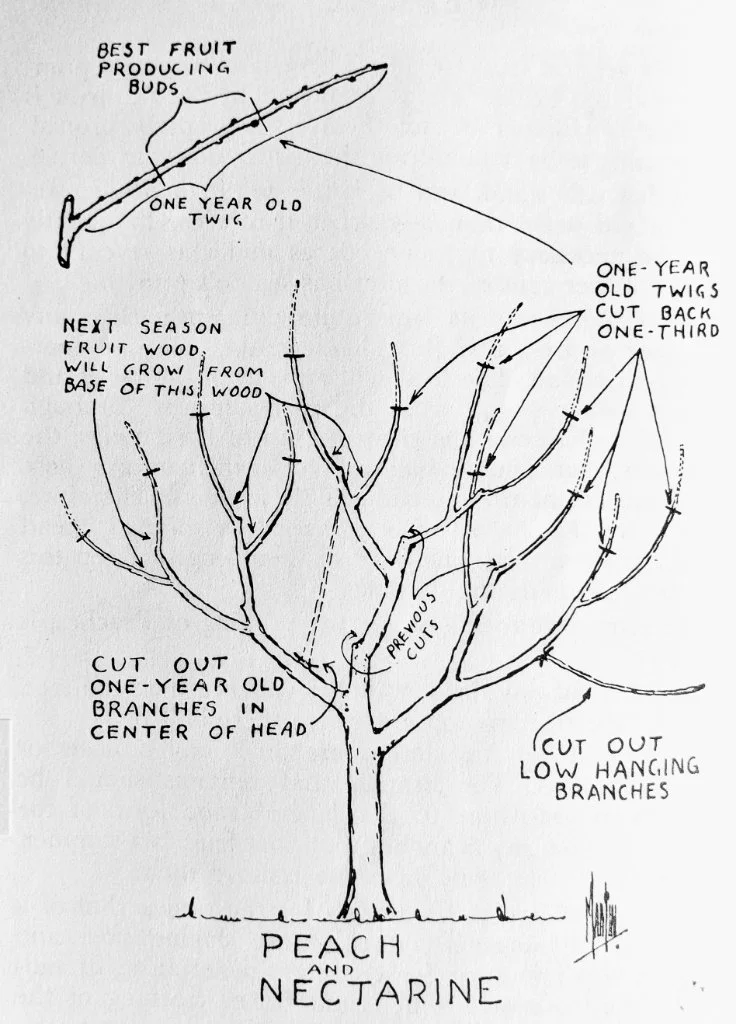 BEST FRUIT
PRODUCING
BUDS
ONE YEAR OLD
TWIG
ONE-YEAR
OLD TWIGS
CUT BACK
ONE-THIRD
NEXT SEASON
FRUIT WOOD
WILL GROW FROM
BASE OF THIS WOOD
PREVIOUS
CUTS
CUT OUT
ONE-YEAR OLD
BRANCHES IN
CENTER OF HEAD
CUT OUT
LOW HANGING
BRANCHES
PEACH
AND
NECTARINE